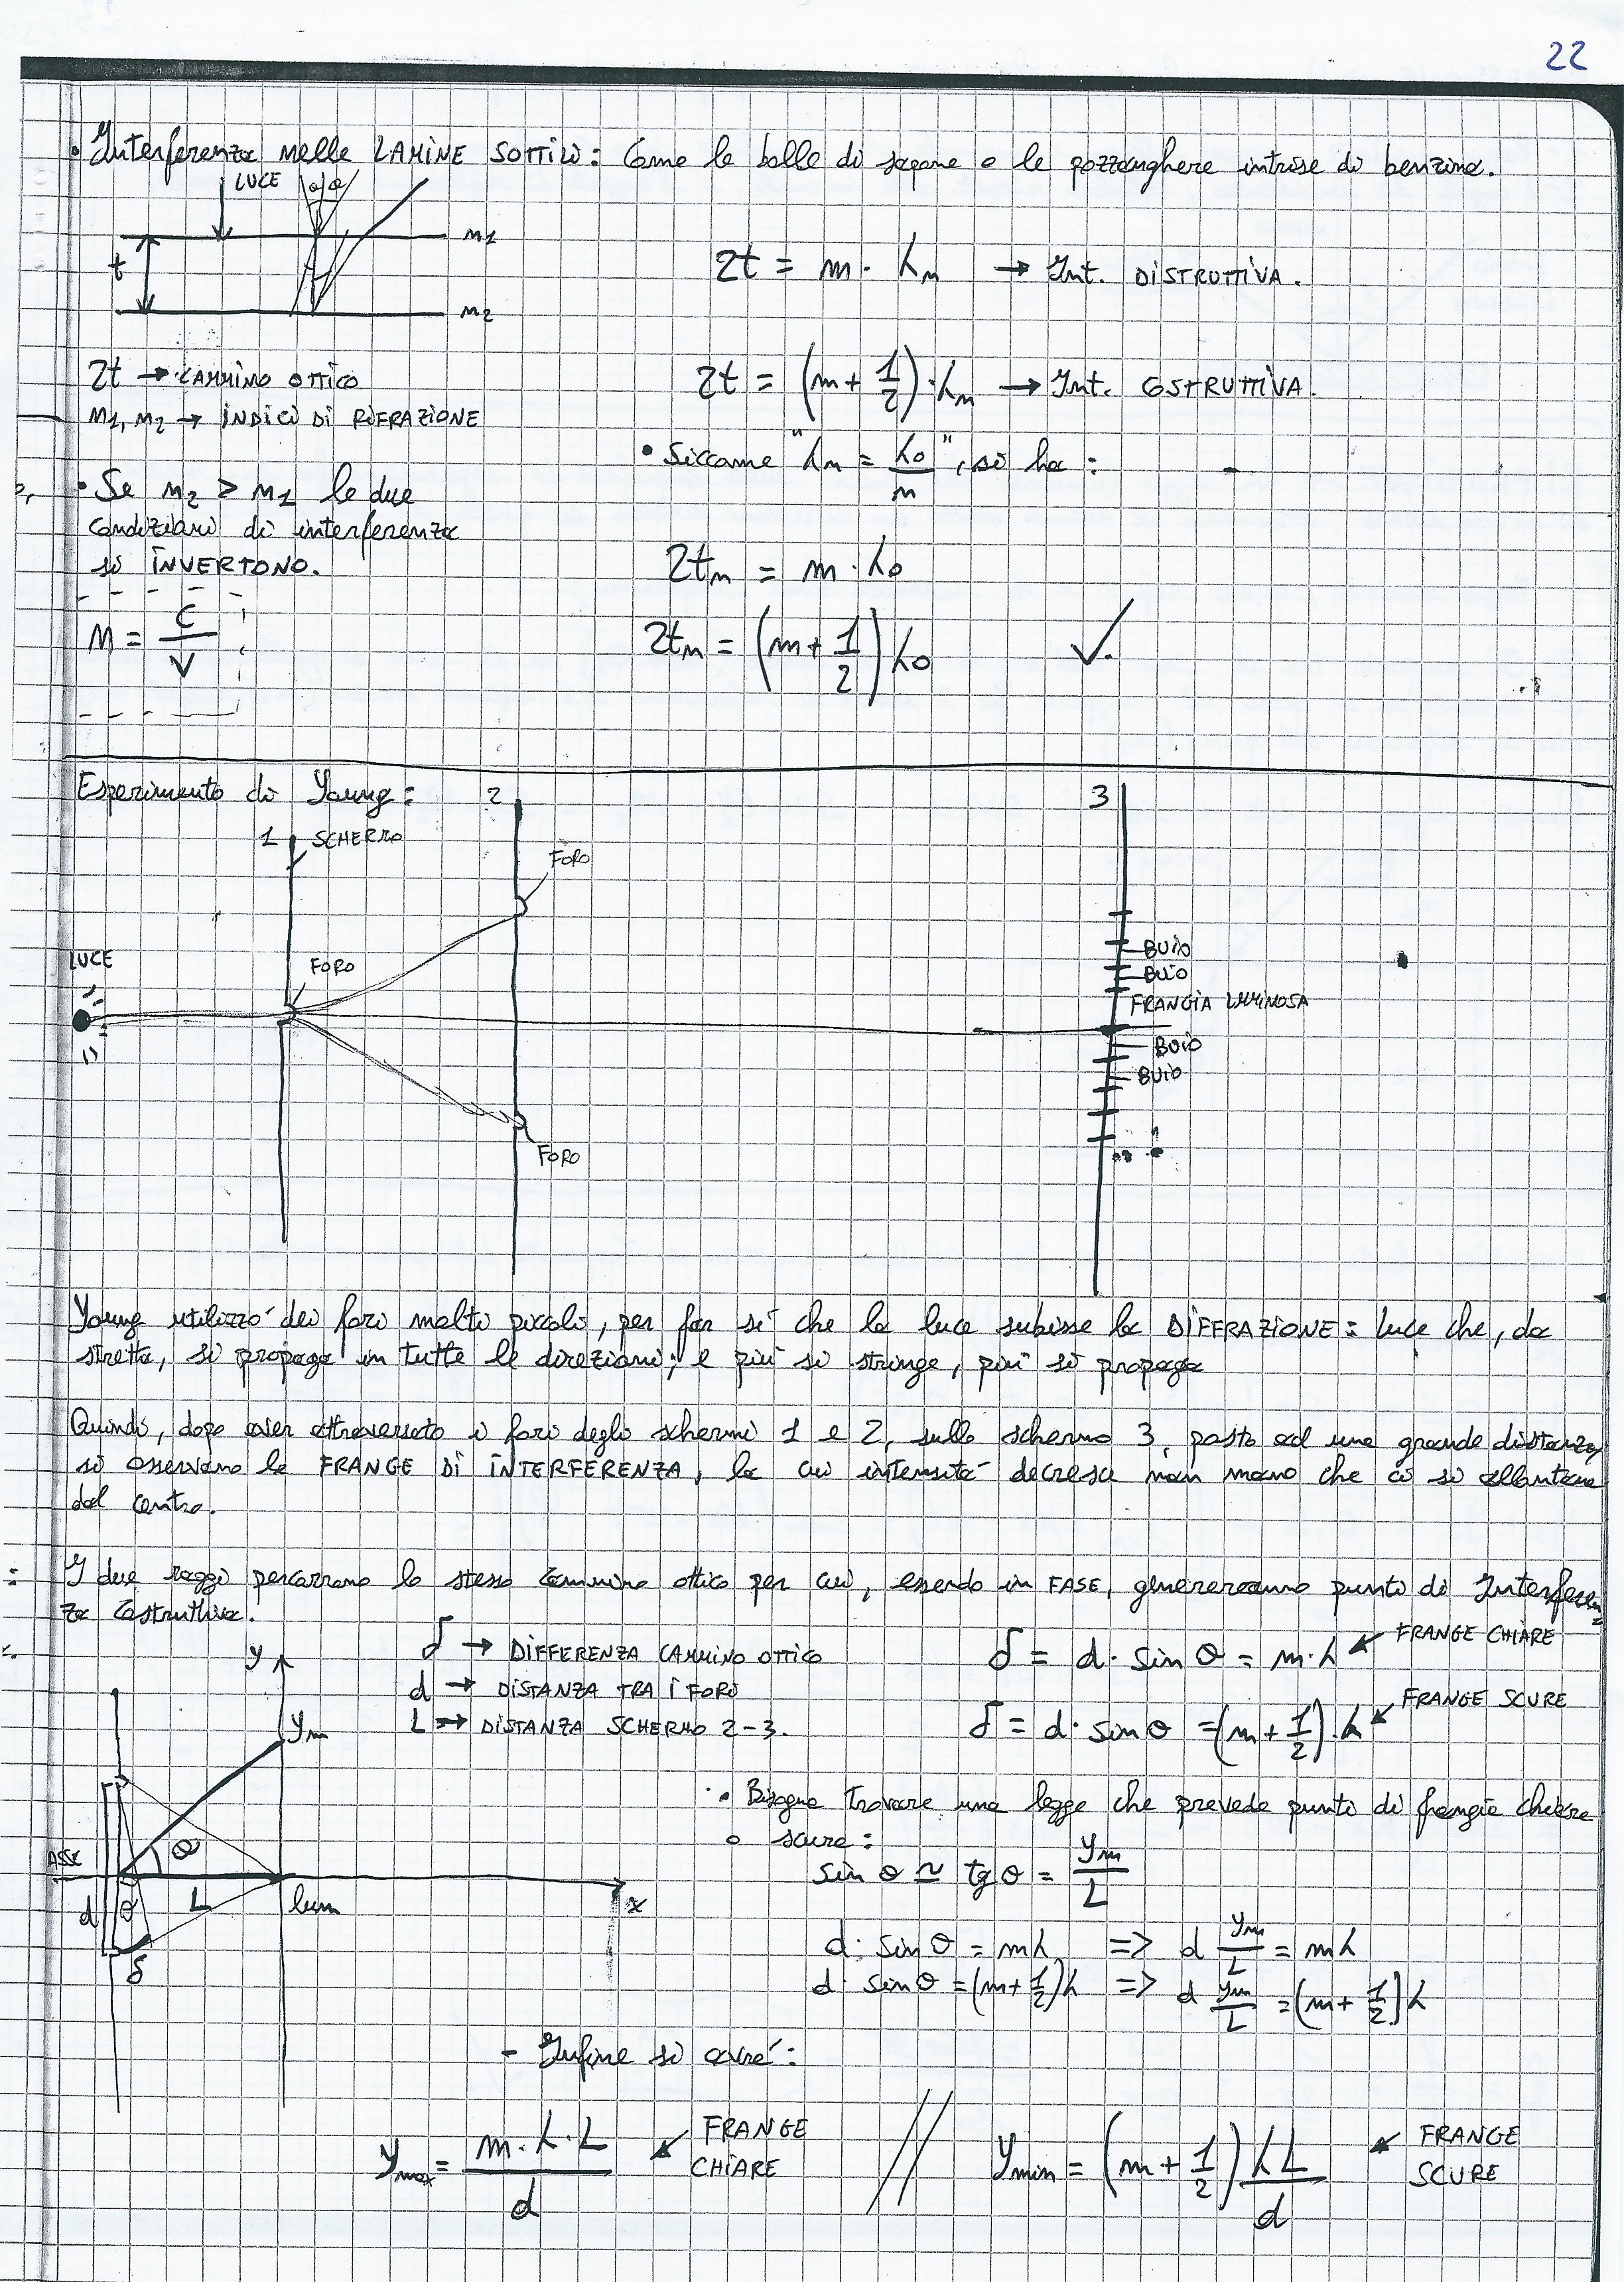 22
• Interferenza nelle LAMINE SOTTILI: Come le bolle di sapone o le pozzanghere intrise di benzina.
LUCE θ θ
n1
t
n2
2t = m · λn → Int. DISTRUTTIVA.
2t → CAMMINO OTTICO
n1, n2 → INDICI DI RIFRAZIONE
2t = (m + 1/2) · λn → Int. COSTRUTTIVA.
• Siccome "λn = λ0/n", si ha:
• Se n2 > n1 le due
condizioni di interferenza
si INVERTONO.
2tn = m · λ0
n = c/v
2tn = (m + 1/2) λ0
Esperimento di Young:
2
3
1 SCHERMO
FORO
LUCE
FORO
BUIO
BUIO
FRANGIA LUMINOSA
BUIO
BUIO
FORO
Young utilizzò dei fori molto piccoli, per far sì che la luce subisse la DIFFRAZIONE = luce che, da
stretta, si propaga in tutte le direzioni; e più si stringe, più si propaga
Quindi, dopo aver attraversato i fori degli schermi 1 e 2, sullo schermo 3, posto ad una grande distanza
si osservano le FRANGE DI INTERFERENZA, la cui intensità decresce man mano che ci si allontana
dal centro.
I due raggi percorrono lo stesso cammino ottico per cui, essendo in FASE, genereranno punti di Interferen
za Costruttiva.
y
δ → DIFFERENZA CAMMINO OTTICO
d → DISTANZA TRA I FORI
L → DISTANZA SCHERMO 2-3.
δ = d · sin θ = m · λ FRANGE CHIARE
δ = d · sin θ = (m + 1/2) · λ FRANGE SCURE
ym
ASSE
θ
L
lum
x
d θ
δ
• Bisogna trovare una legge che prevede punti di frangia chiare
o scure:
sin θ ≃ tg θ = ym/L
d · sin θ = mλ => d ym/L = mλ
d · sin θ = (m + 1/2)λ => d ym/L = (m + 1/2)λ
- Infine si avrà:
ymax = m · λ · L/d FRANGE CHIARE
// ymin = (m + 1/2) λL/d FRANGE SCURE